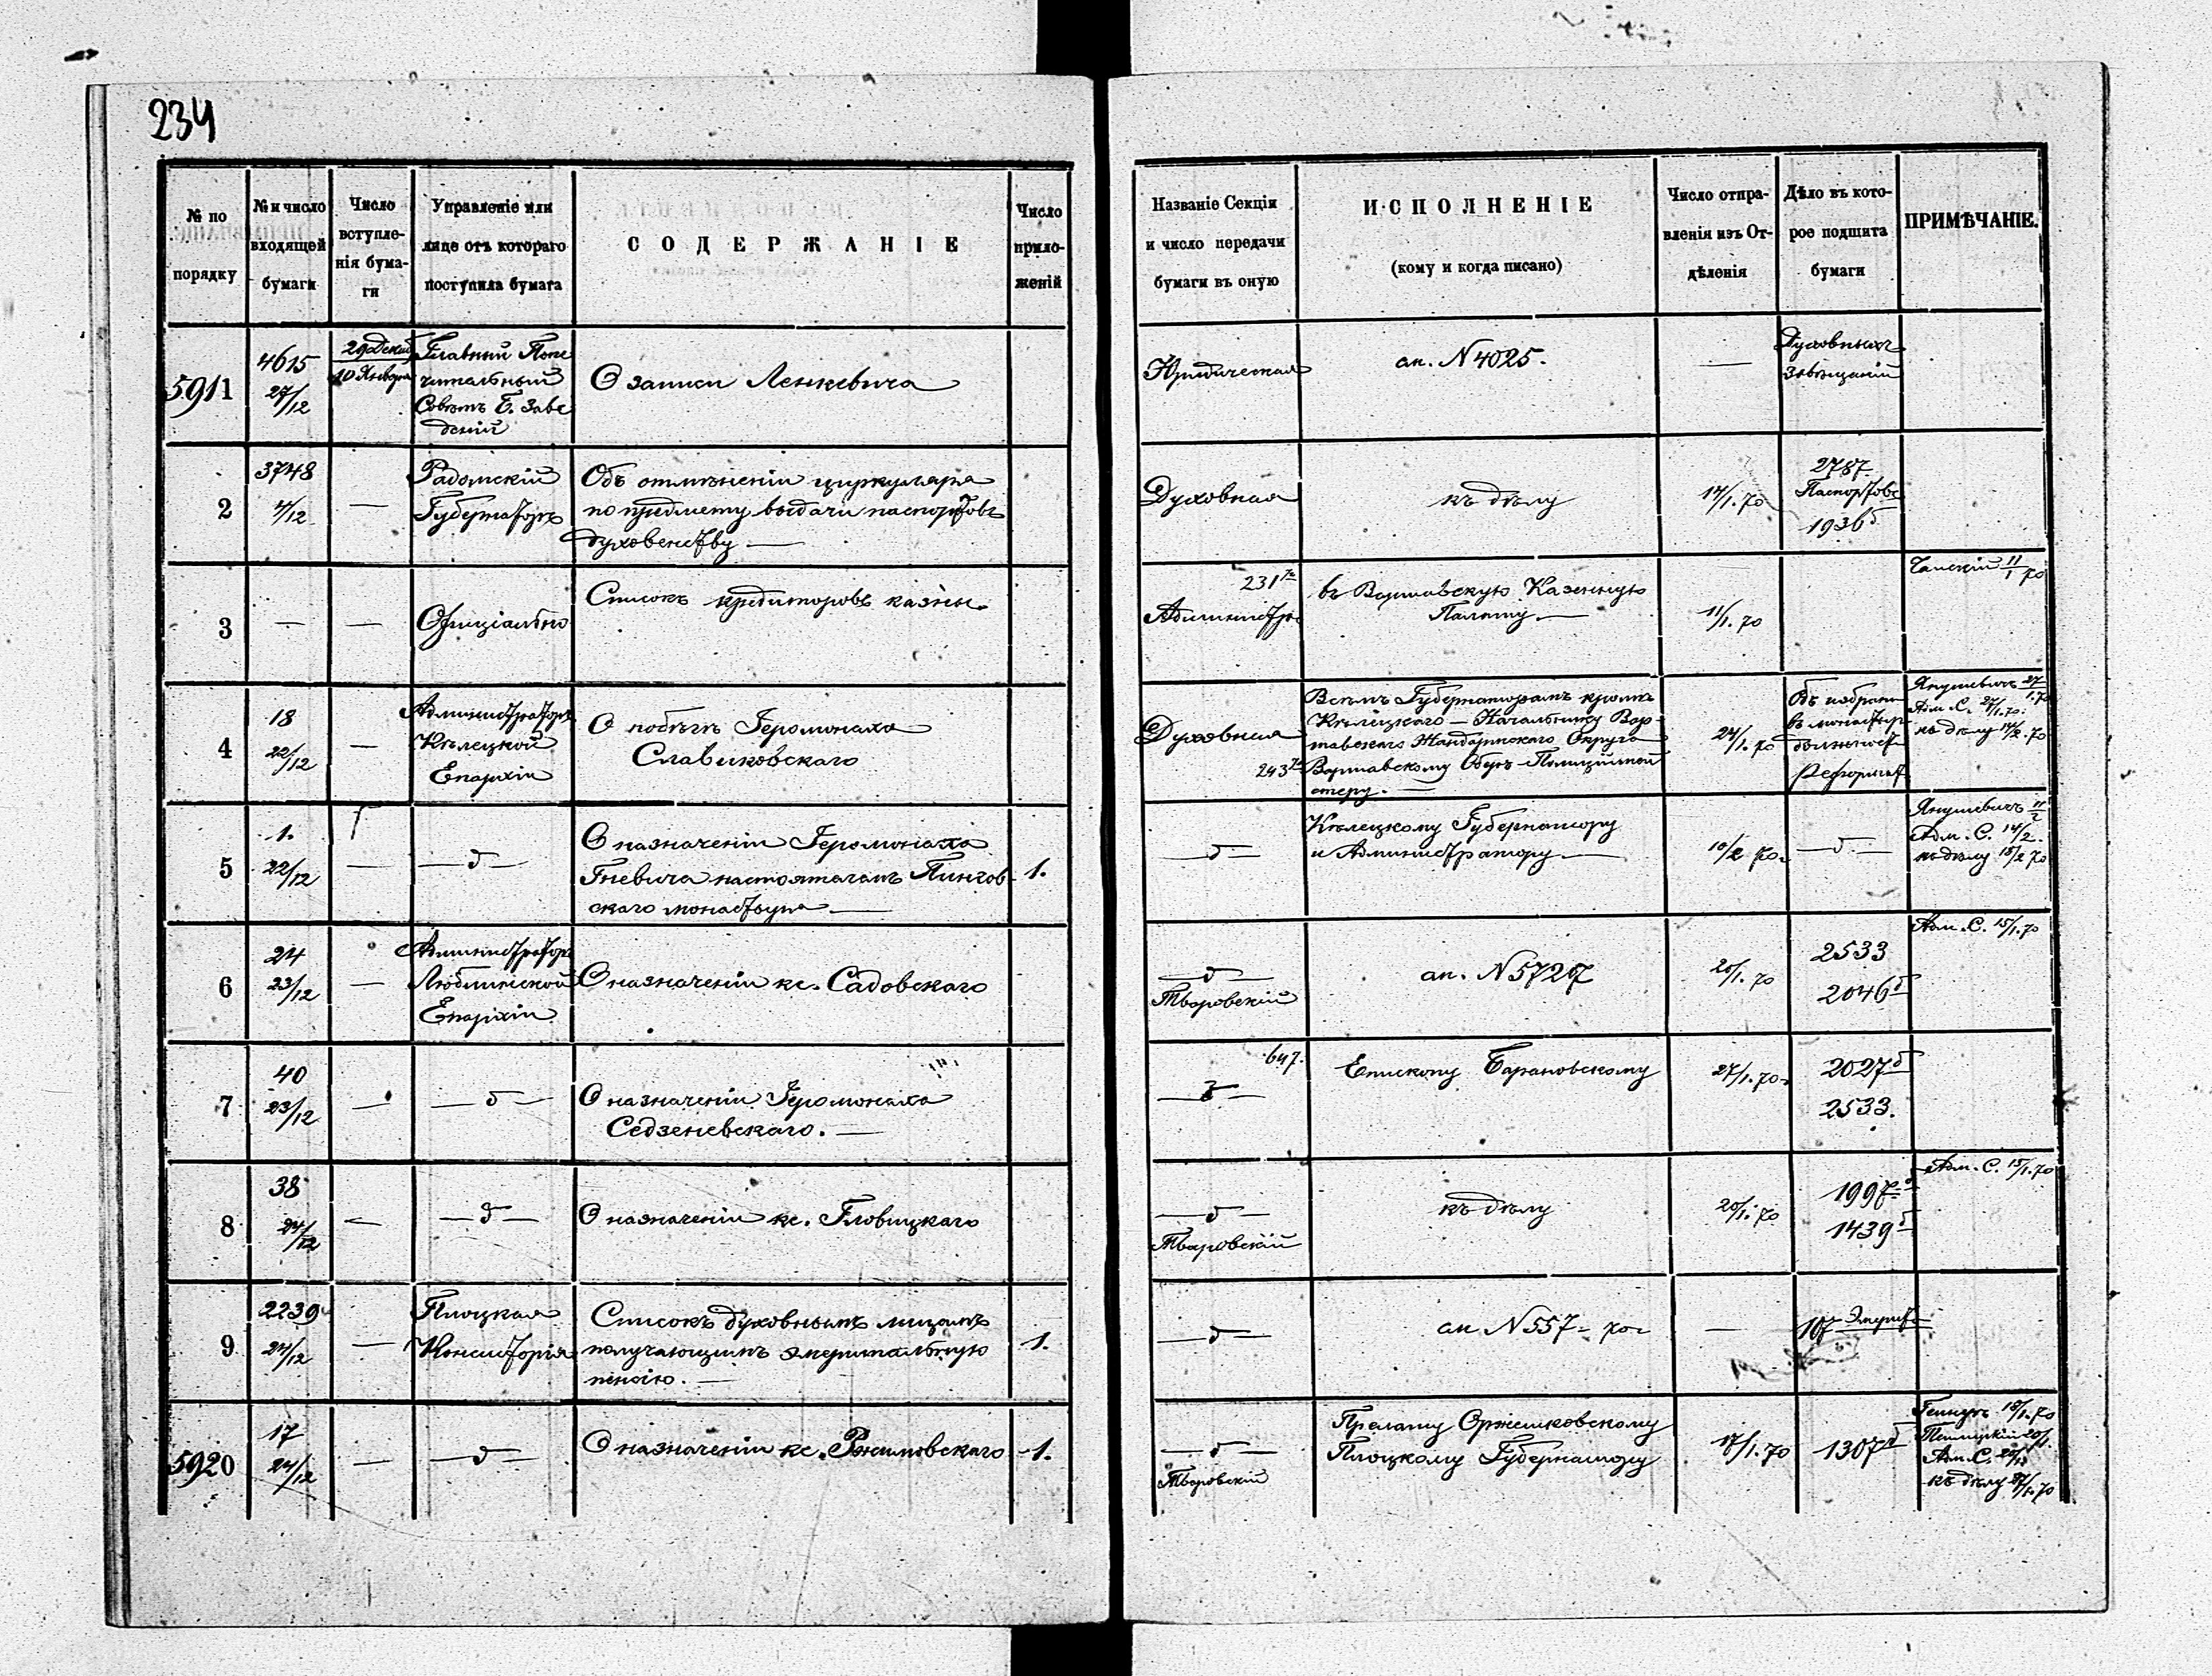 234
№ по порядку
№ и число входящей бумаги
Число вступле-
нія бума-
ги
Управленіе или
лице отъ котораго
поступила бумага
СОДЕРЖАНІЕ
Число
прило-
женій
Названіе Секціи
и число передачи
бумаги въ оную
ИСПОЛНЕНІЕ
(кому и когда писано)
Число отпра-
вленія изъ От-
дѣленія
Дѣло въ кото-
рое подшита
бумаги
ПРИМѢЧАНІЕ.
5911
4615
27/12
29 Декаб
10 Января
Главный Попе
чительный
Совѣтъ Б. Заве
деній
О записи Ленкевича
Юридическая
ан. N 4025.
—
Духовныхъ
Завѣщаній
2
3748
4/12
—
Радомскій
Губернаторъ
Объ отмѣненіи циркуляра
по предмету выдачи паспортовъ
духовенству —
Духовная
къ дѣлу
14/1. 70
2787
Паспортовъ
1936 б
3
—
—
Офиціально
Списокъ кредиторовъ казны.
231
Администр.
въ Варшавскую Казенную
Палату —
11/1. 70
11/1 70
4
18
22/12
—
Администраторъ
Кѣлецкой
Епархіи
О побѣгѣ Іеромонаха
Славиковскаго
Духовная
243
Всѣмъ Губернаторамъ кромѣ
Кѣлецкаго — Начальнику Вар-
шавскаго Жандармскаго Округа
Варшавскому Оберъ-Полицiймей
стеру. —
24/1. 70
Объ избраніи
въ монастыр.
должности
Реформат
Янушевичъ 27/1. 70
Адм. С. 27/1. 70.
къ дѣлу 14/2. 70
5
1.
22/12
—
— д —
О назначеніи Іеромонаха
Гневича настоятелемъ Пинчов-
скаго монастыря —
1.
— д —
Кѣлецкому Губернатору
и Администратору —
10/2 70
— д —
Янушевичъ 11/2
Адм. С. 14/2.
къ дѣлу 15/2 70
6
24
23/12
—
Администраторъ
Люблинской
Епархіи
О назначеніи кс. Садовскаго
— д —
Тваровскій
ан. N 5727
20/1. 70
2533
2046 б
Адм. С. 15/1. 70
7
40
23/12
—
— д —
О назначеніи Іеромонаха
Седзеневскаго. —
647.
— д —
Епископу Барановскому
27/1. 70
2027 б
2533.
8
38
24/12
—
— д —
О назначеніи кс. Гловицкаго
— д —
Тваровскій
къ дѣлу
20/1. 70
1997
1439 б
Адм. С. 15/1. 70
9
2239
24/12
—
Плоцкая
Консисторія
Списокъ духовнымъ лицамъ
получающимъ эмеритальную
пенсію. —
1.
— д —
ан N 557 - 70 г
—
107 Эмерит
5920
17
24/12
—
— д —
О назначеніи кс. Ржимовскаго
1.
— д —
Тваровскій
Прелату Оржешковскому
Плоцкому Губернатору
17/1. 70
1307 б
15/1. 70
20/1.
Адм. С.
къ дѣлу 27/1. 70